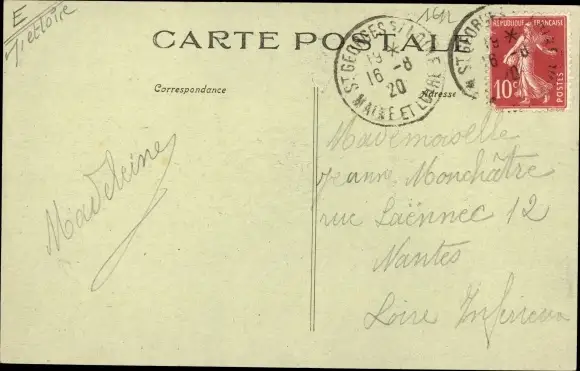 E
CARTE POSTALE
Correspondance
Adresse
ST GEORGES S/ LOIRE
19 *
16 -8
20
MAINE ET LOIRE
RÉPUBLIQUE FRANÇAISE
10c
POSTES
Madeleine
Mademoiselle
Jeanne Monchâtre
rue Laënnec 12
Nantes
Loire Inférieure